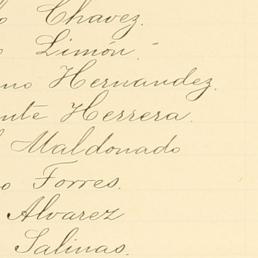 o Chavez.
o Limón.
no Hernandez.
nte Herrera.
l Maldonado
o Torres.
Alvarez
Salinas.